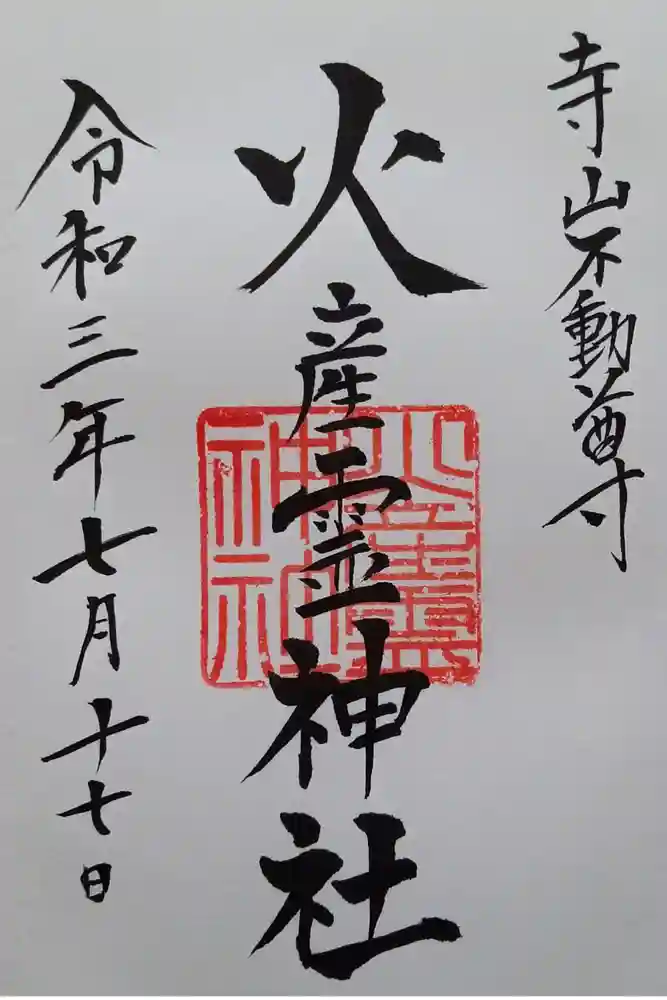 寺山不動尊
火産霊神社
火産霊神社
令和三年七月十七日